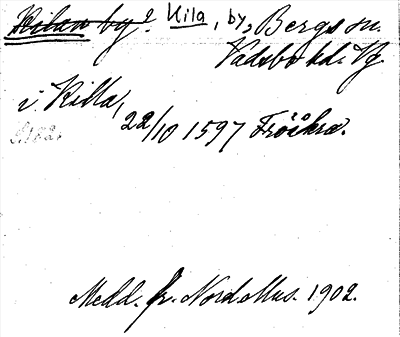 Kilan by? Kila, by, Bergs sn.
Vadsbo hd. Vg.
i Killa,
22/10 1597 Fröåkra.
Medd. fr. Nord. Mus. 1902.